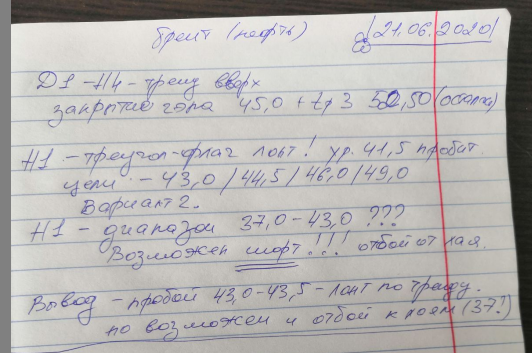 Брент (нефть) 21.06.2020
D1-H4-тренд вверх
закрытие гэпа 45,0 + tp 3 50,50 (осалка)
H1-треугол-флаг лонг! ур. 41,5 пробит.
цели - 43,0/44,5/46,0/49,0
Вариант 2.
H1 - диапазон 37,0-43,0 ???
Возможен шорт!!! отбой от
Вывод - пробой 43,0-43,5 - лонг по тренду.
но возможен и отбой к лоям (37!)